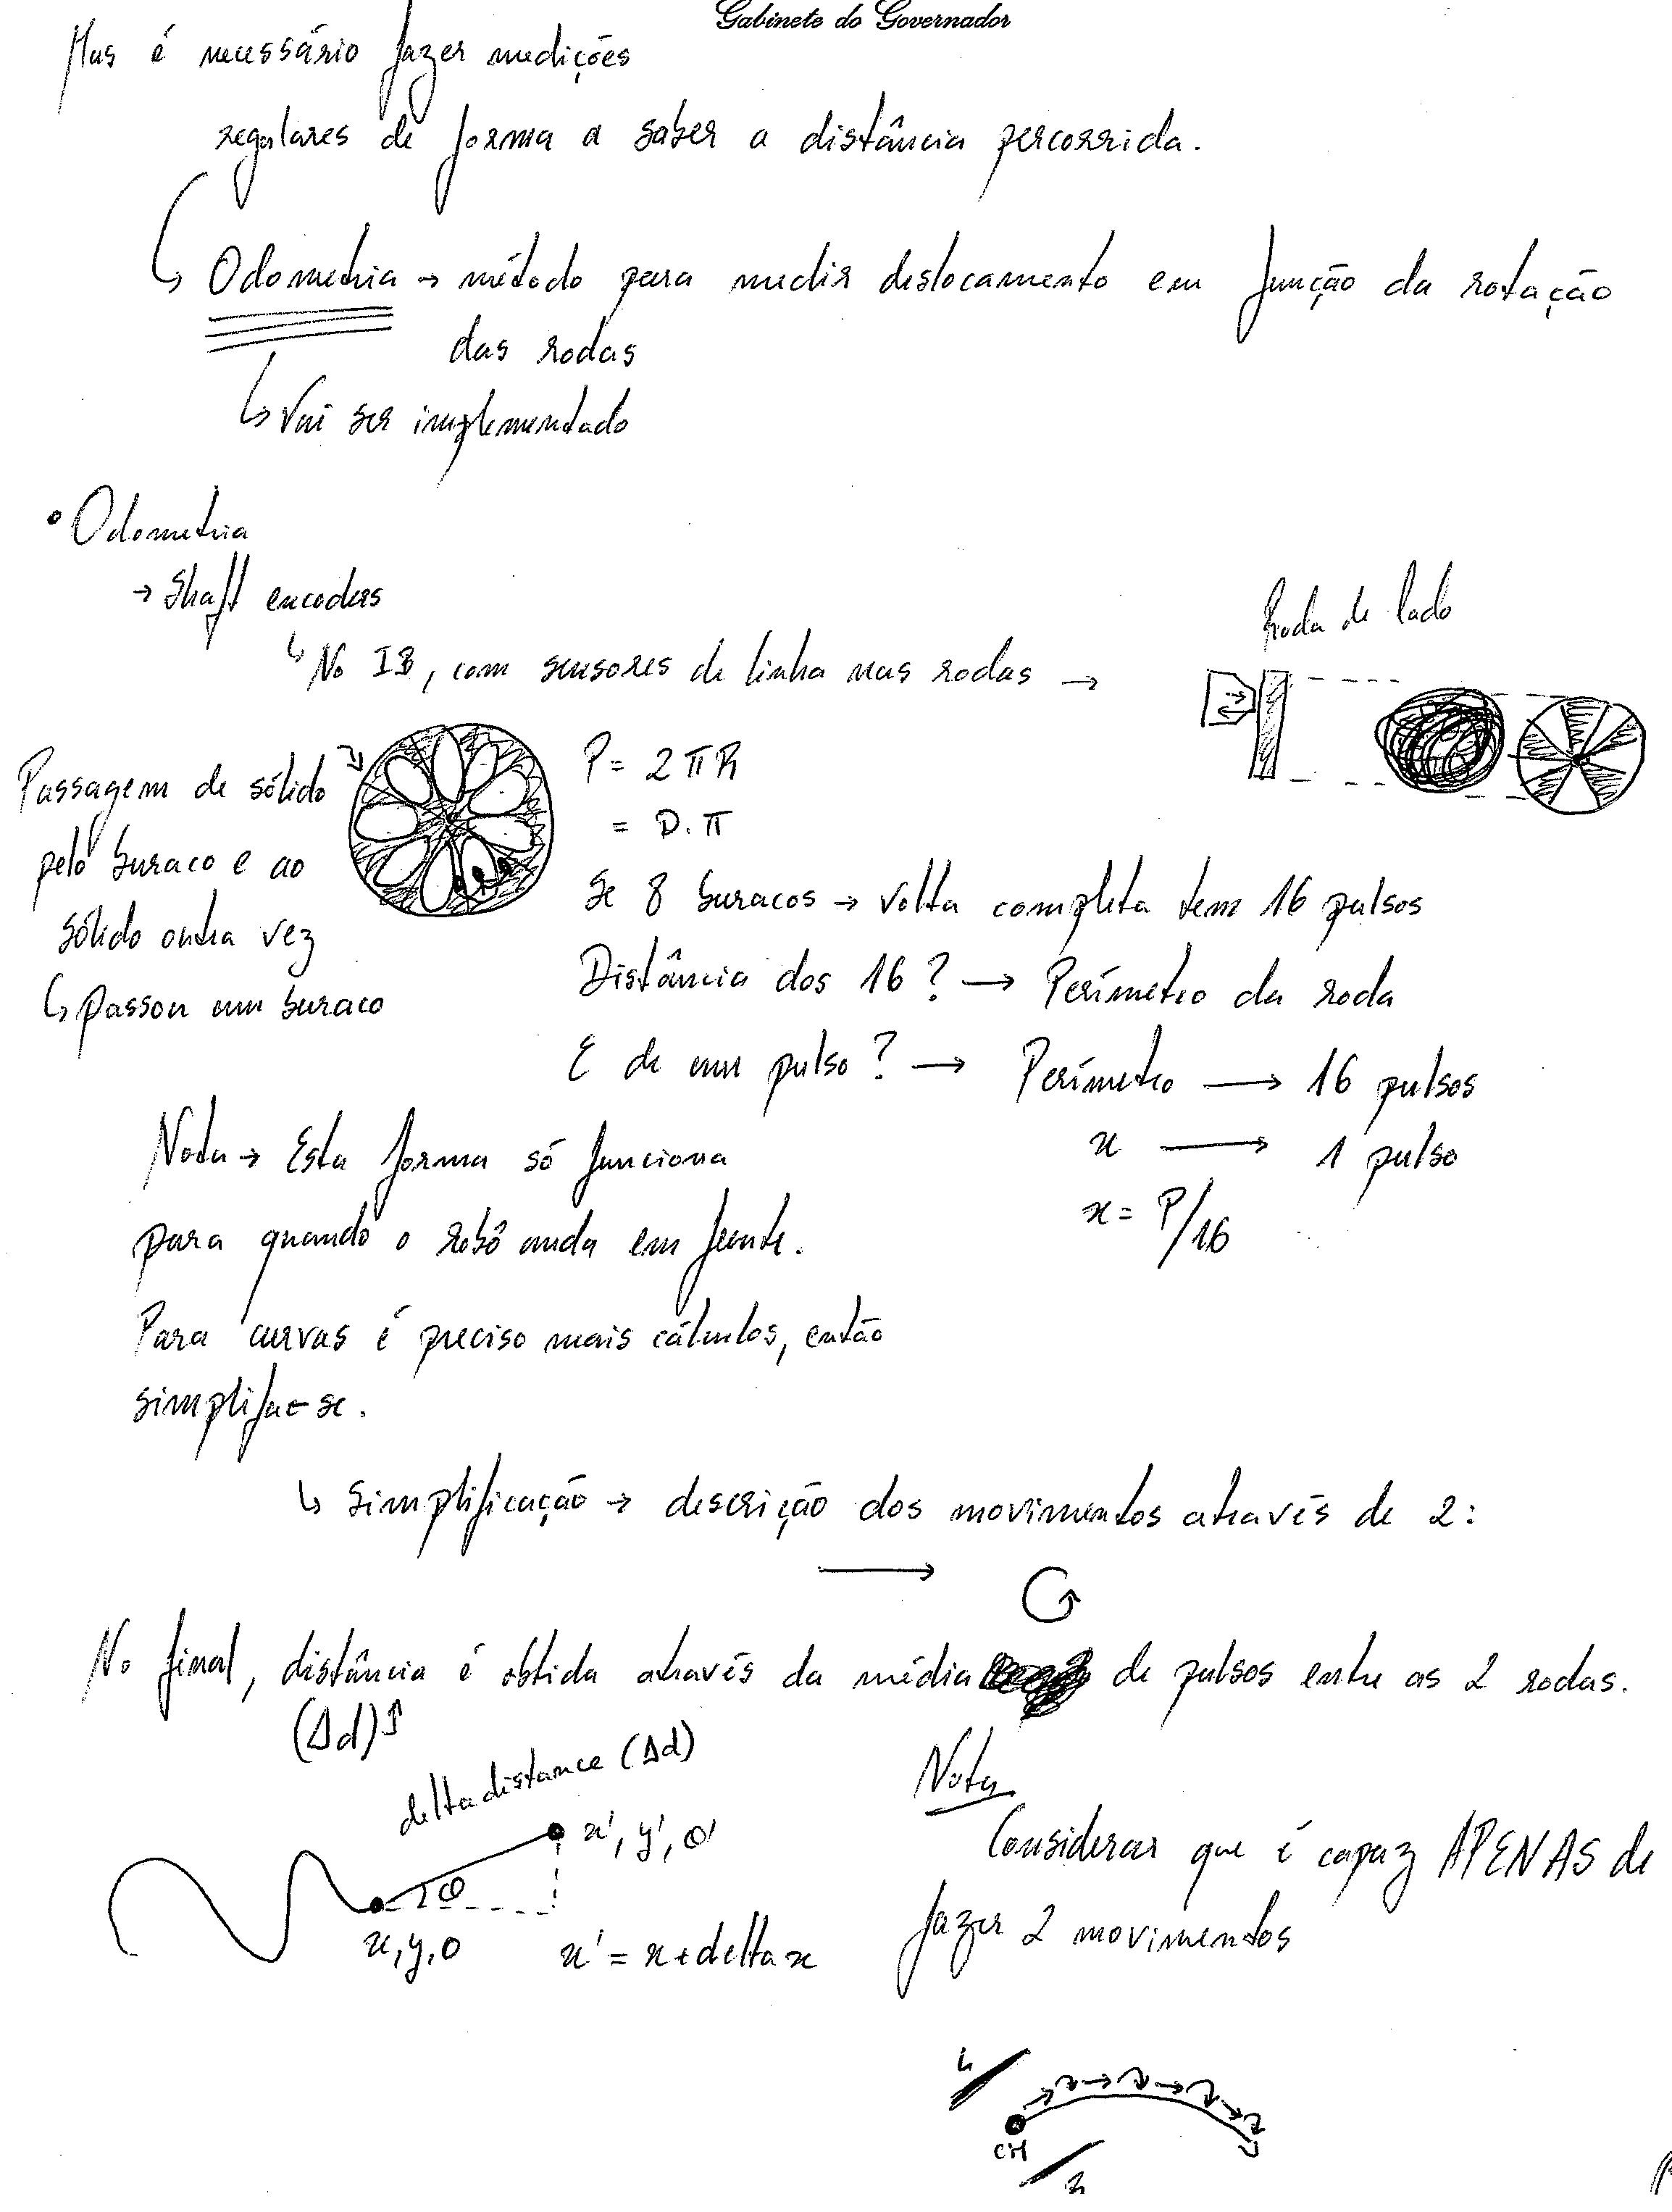 Gabinete do Governador
Mas é necessário fazer medições
regulares de forma a saber a distância percorrida.
↳ Odometria → método para medir deslocamento em função da rotação
das rodas
↳ Vai ser implementado
• Odometria
→ Shaft encoders
↳ No IB, com sensores de linha nas rodas →
Roda de lado
Passagem de sólido
pelo buraco e ao
sólido outra vez
↳ Passou um buraco
P = 2 π R
= D . π
Se 8 buracos → Volta completa tem 16 pulsos
Distância dos 16 ? → Perímetro da roda
E de um pulso ? → Perímetro → 16 pulsos
x → 1 pulso
x = P/16
Nota → Esta forma só funciona
para quando o robô anda em frente.
Para curvas é preciso mais cálculos, então
simplifa-se.
↳ Simplificação → descrição dos movimentos através de 2 :
No final, distância é obtida através da média de pulsos entre as 2 rodas.
(Δd)
delta distance (Δd)
x', y', θ'
x, y, θ
x' = x + delta x
Nota
Considerar que é capaz APENAS de
fazer 2 movimentos
L
CM
R